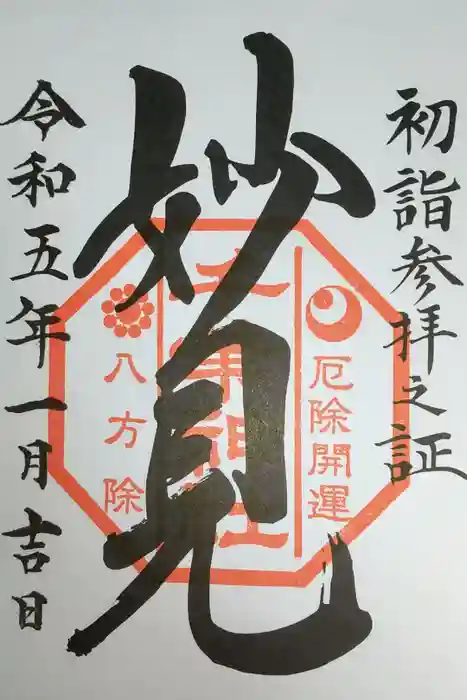 初詣参拝之証
厄除開運
妙見
千葉神社
八方除
令和五年一月吉日